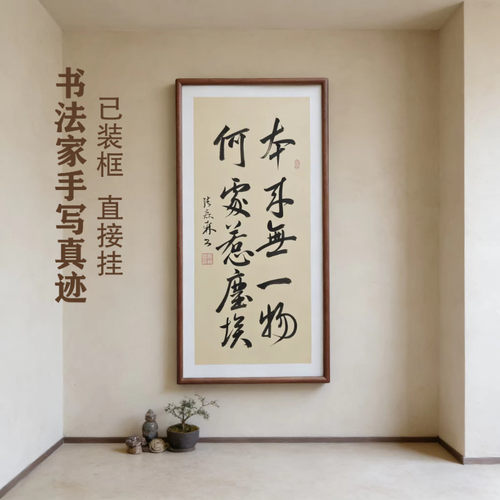 书法家手写真迹
已装框 直接挂
本来無一物
何處惹塵埃